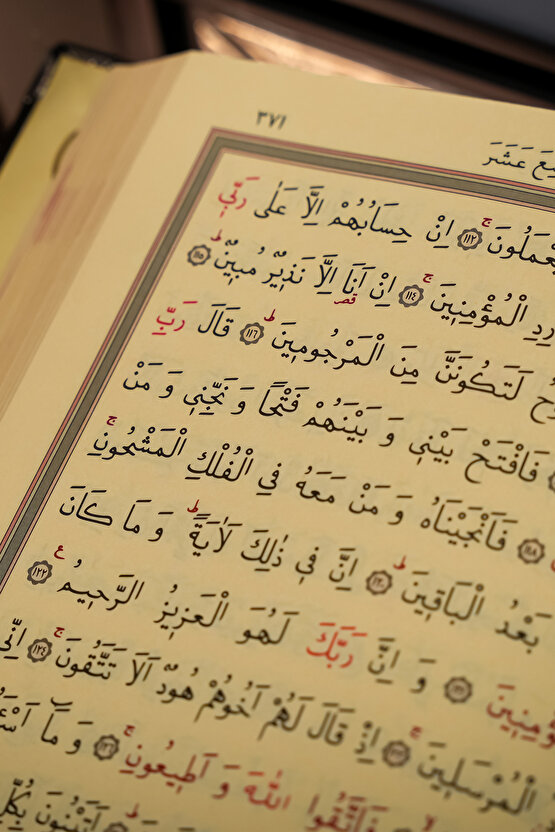 ٣٧١
عَشَرَ
ۚ ﴿١١٢﴾ اِنْ حِسَابُهُمْ اِلَّا عَلٰى رَبّٖي
الْمُؤْمِنٖينَۚ ﴿١١٤﴾ اِنْ اَنَا۬ اِلَّا نَذٖيرٌ مُبٖينٌۜ ﴿١١٥﴾
لَتَكُونَنَّ مِنَ الْمَرْجُومٖينَۜ ﴿١١٦﴾ قَالَ رَبِّ
فَافْتَحْ بَيْنٖي وَ بَيْنَهُمْ فَتْحًا وَ نَجِّنٖي وَ مَنْ
﴿١١٨﴾ فَاَنْجَيْنَاهُ وَ مَنْ مَعَهُ فِي الْفُلْكِ الْمَشْحُونِۚ
بَعْدُ الْبَاقٖينَۜ ﴿١٢٠﴾ اِنَّ فٖي ذٰلِكَ لَاٰيَةًۜ وَ مَا كَانَ
﴿١٢١﴾ وَ اِنَّ رَبَّكَ لَهُوَ الْعَزٖيزُ الرَّحٖيمُ ﴿١٢٢﴾
الْمُرْسَلٖينَۚ ﴿١٢٣﴾ اِذْ قَالَ لَهُمْ اَخُوهُمْ هُودٌ اَلَا تَتَّقُونَۚ ﴿١٢٤﴾ اِنّٖي
فَاتَّقُوا اللّٰهَ وَ اَطٖيعُونِۚ ﴿١٢٦﴾ وَ مَٓا
اَتَبْنُونَ بِكُلِّ